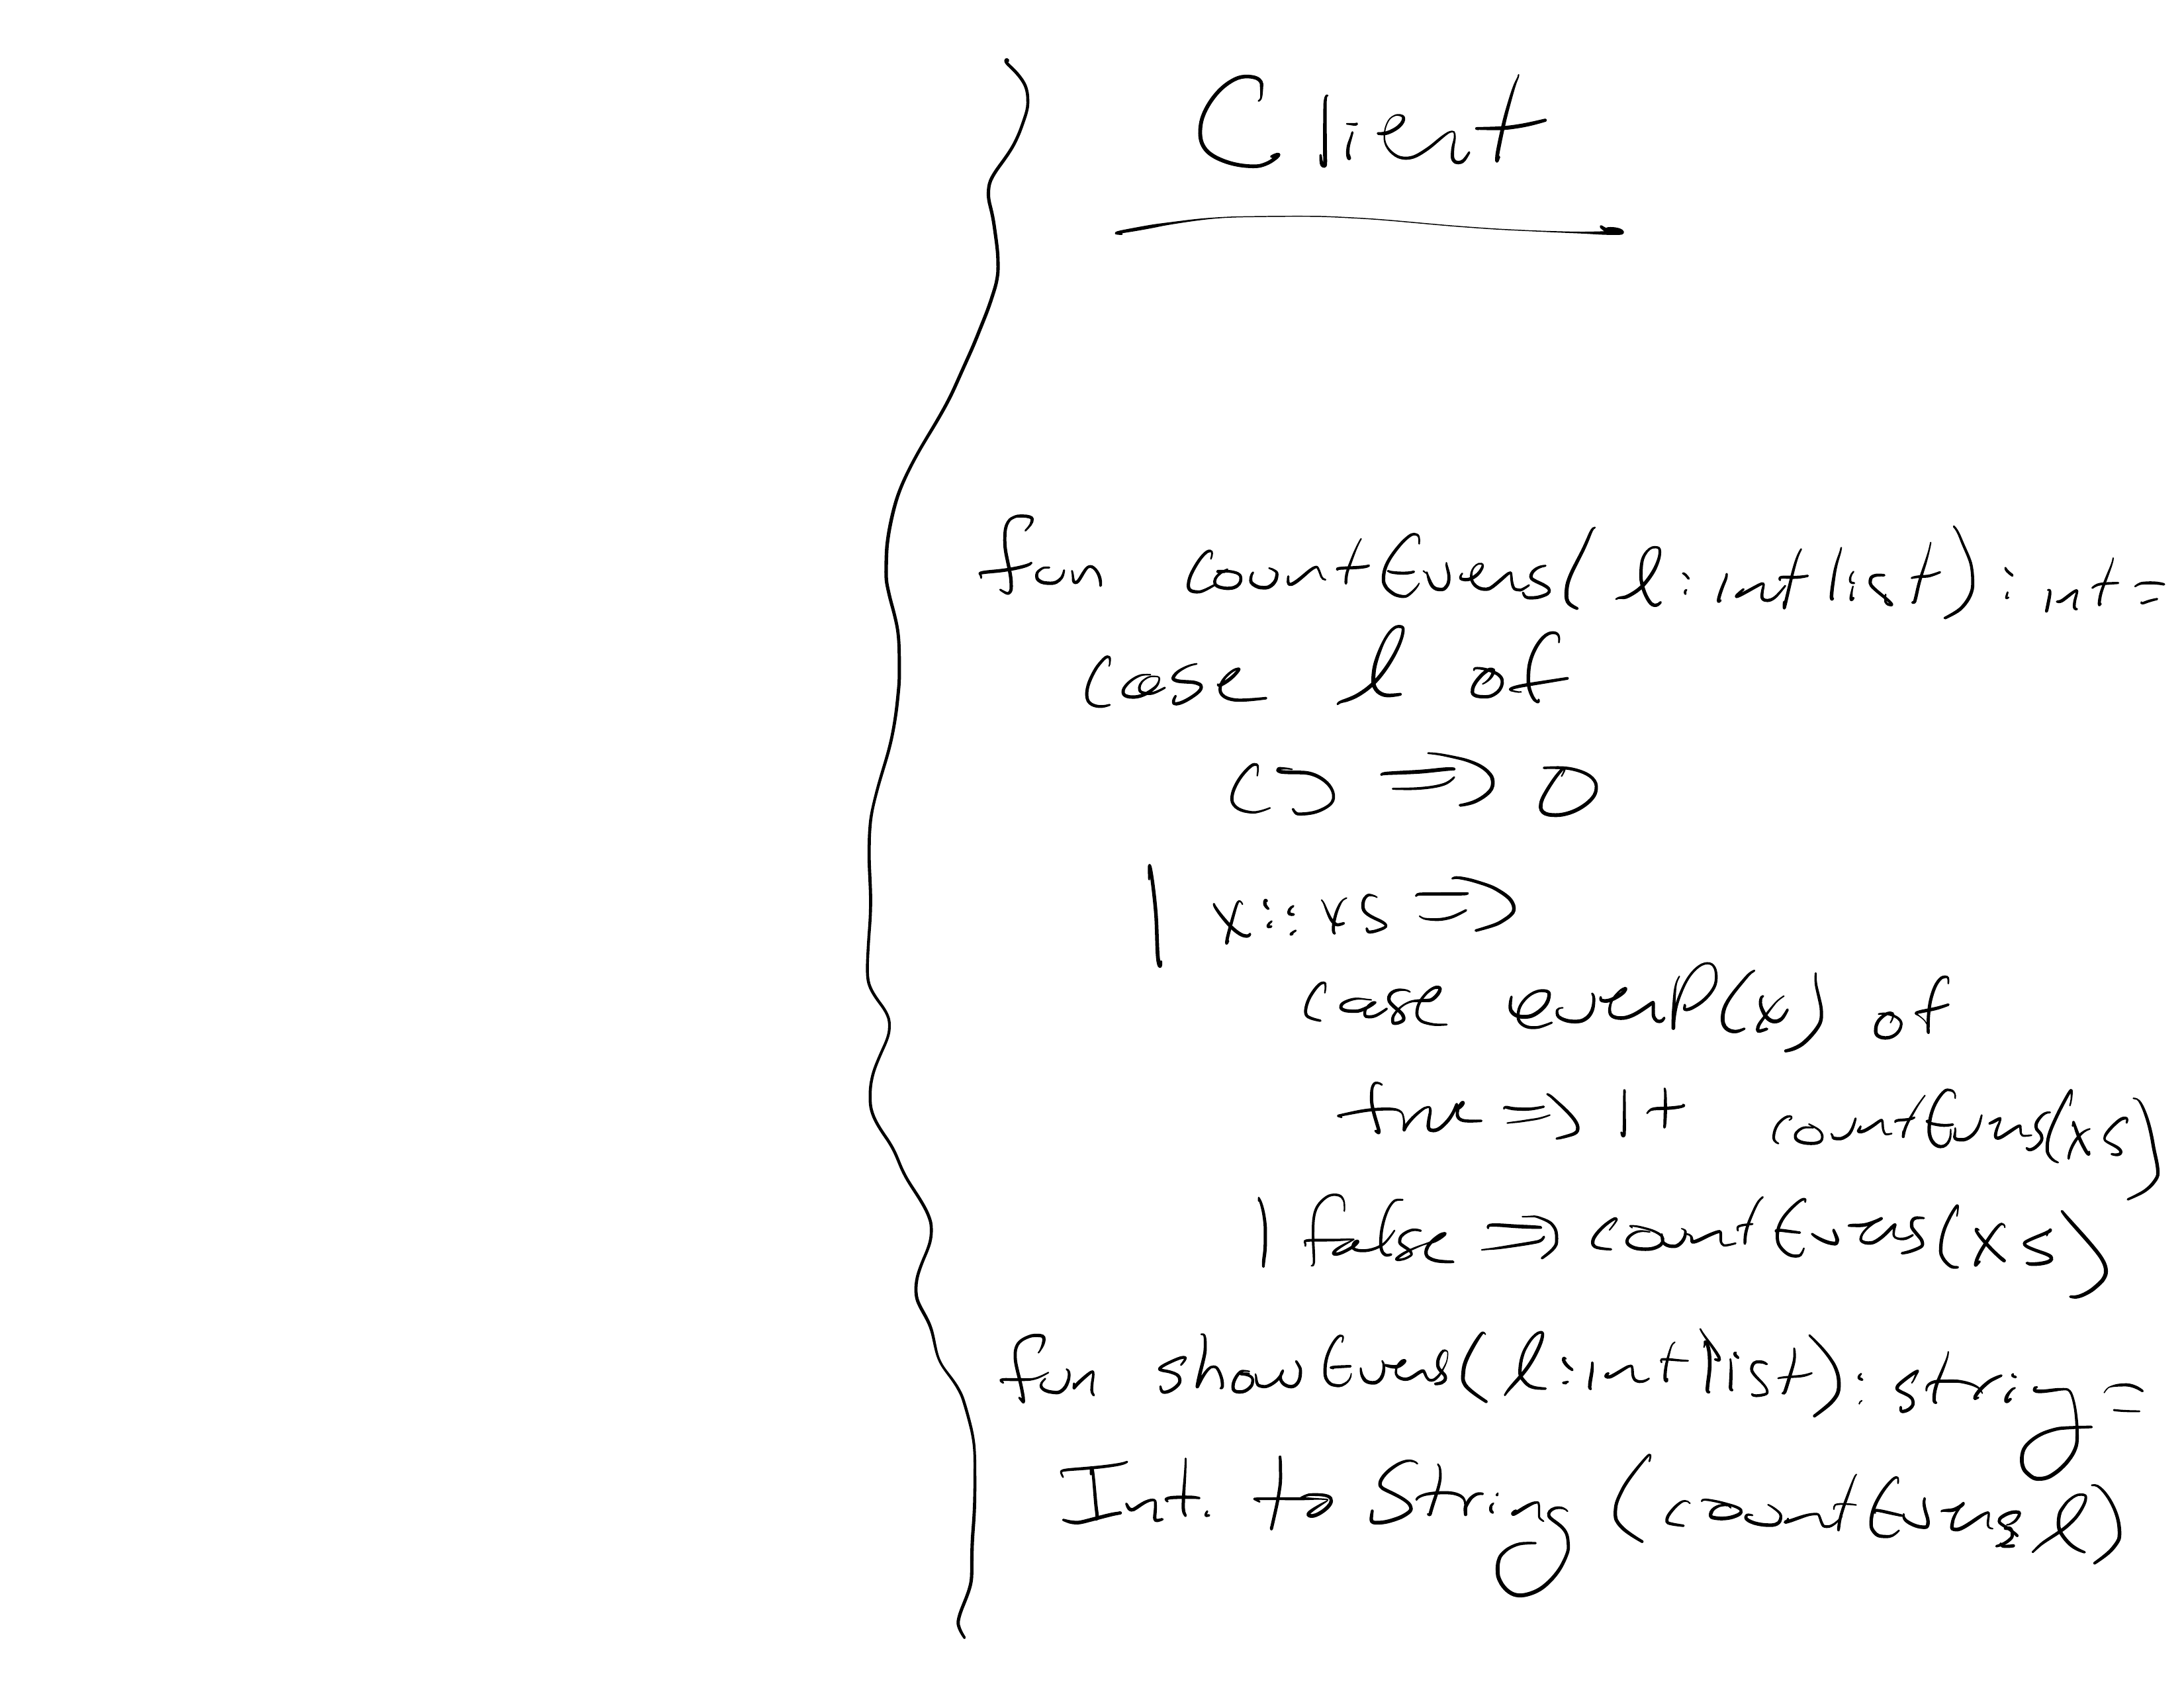 Client
fun countEvens(l:int list): int=
case l of
[] => 0
| x::xs =>
case evenP(x) of
true => 1+ countEvens(xs)
| false => countEvens(xs)
fun showEvens(l:int list): string=
Int. to String (countEvens l)